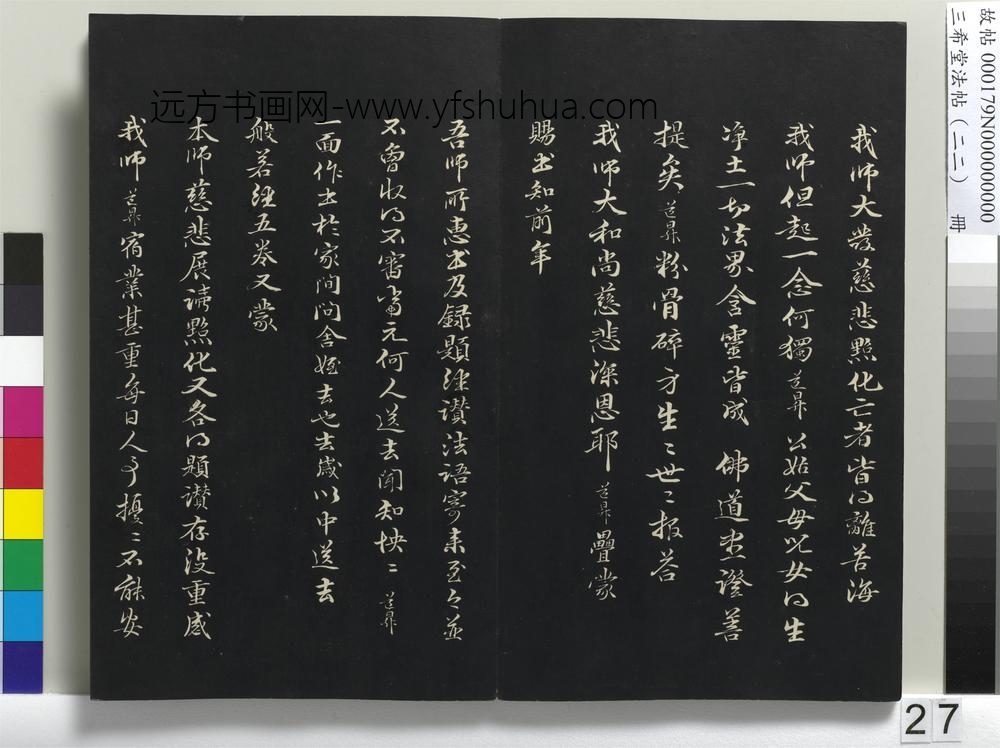 我师大发慈悲點化亡者皆得離苦海
我师但起一念何獨道昇公姑父母兒女得生
净土一切法界含靈皆成 佛道坐證菩
提矣道昇粉骨碎身生〻世〻报荅
我师大和尚慈悲深恩耶 道昇疊蒙
賜书知前年
吾师所惠书及録題经讚法语寄来至今並
不曾收得不審當元何人送去闻知怏〻 道昇
一面作书於家间问舍姪去也去歲以中送去
般若经五卷又蒙
本师慈悲展诵點化又各得題讚存没重感
我师 道昇宿業甚重每日人事擾〻不能安
远方书画网-www.yfshuhua.com
故帖 000179N000000000
三希堂法帖（二二） 冊
27